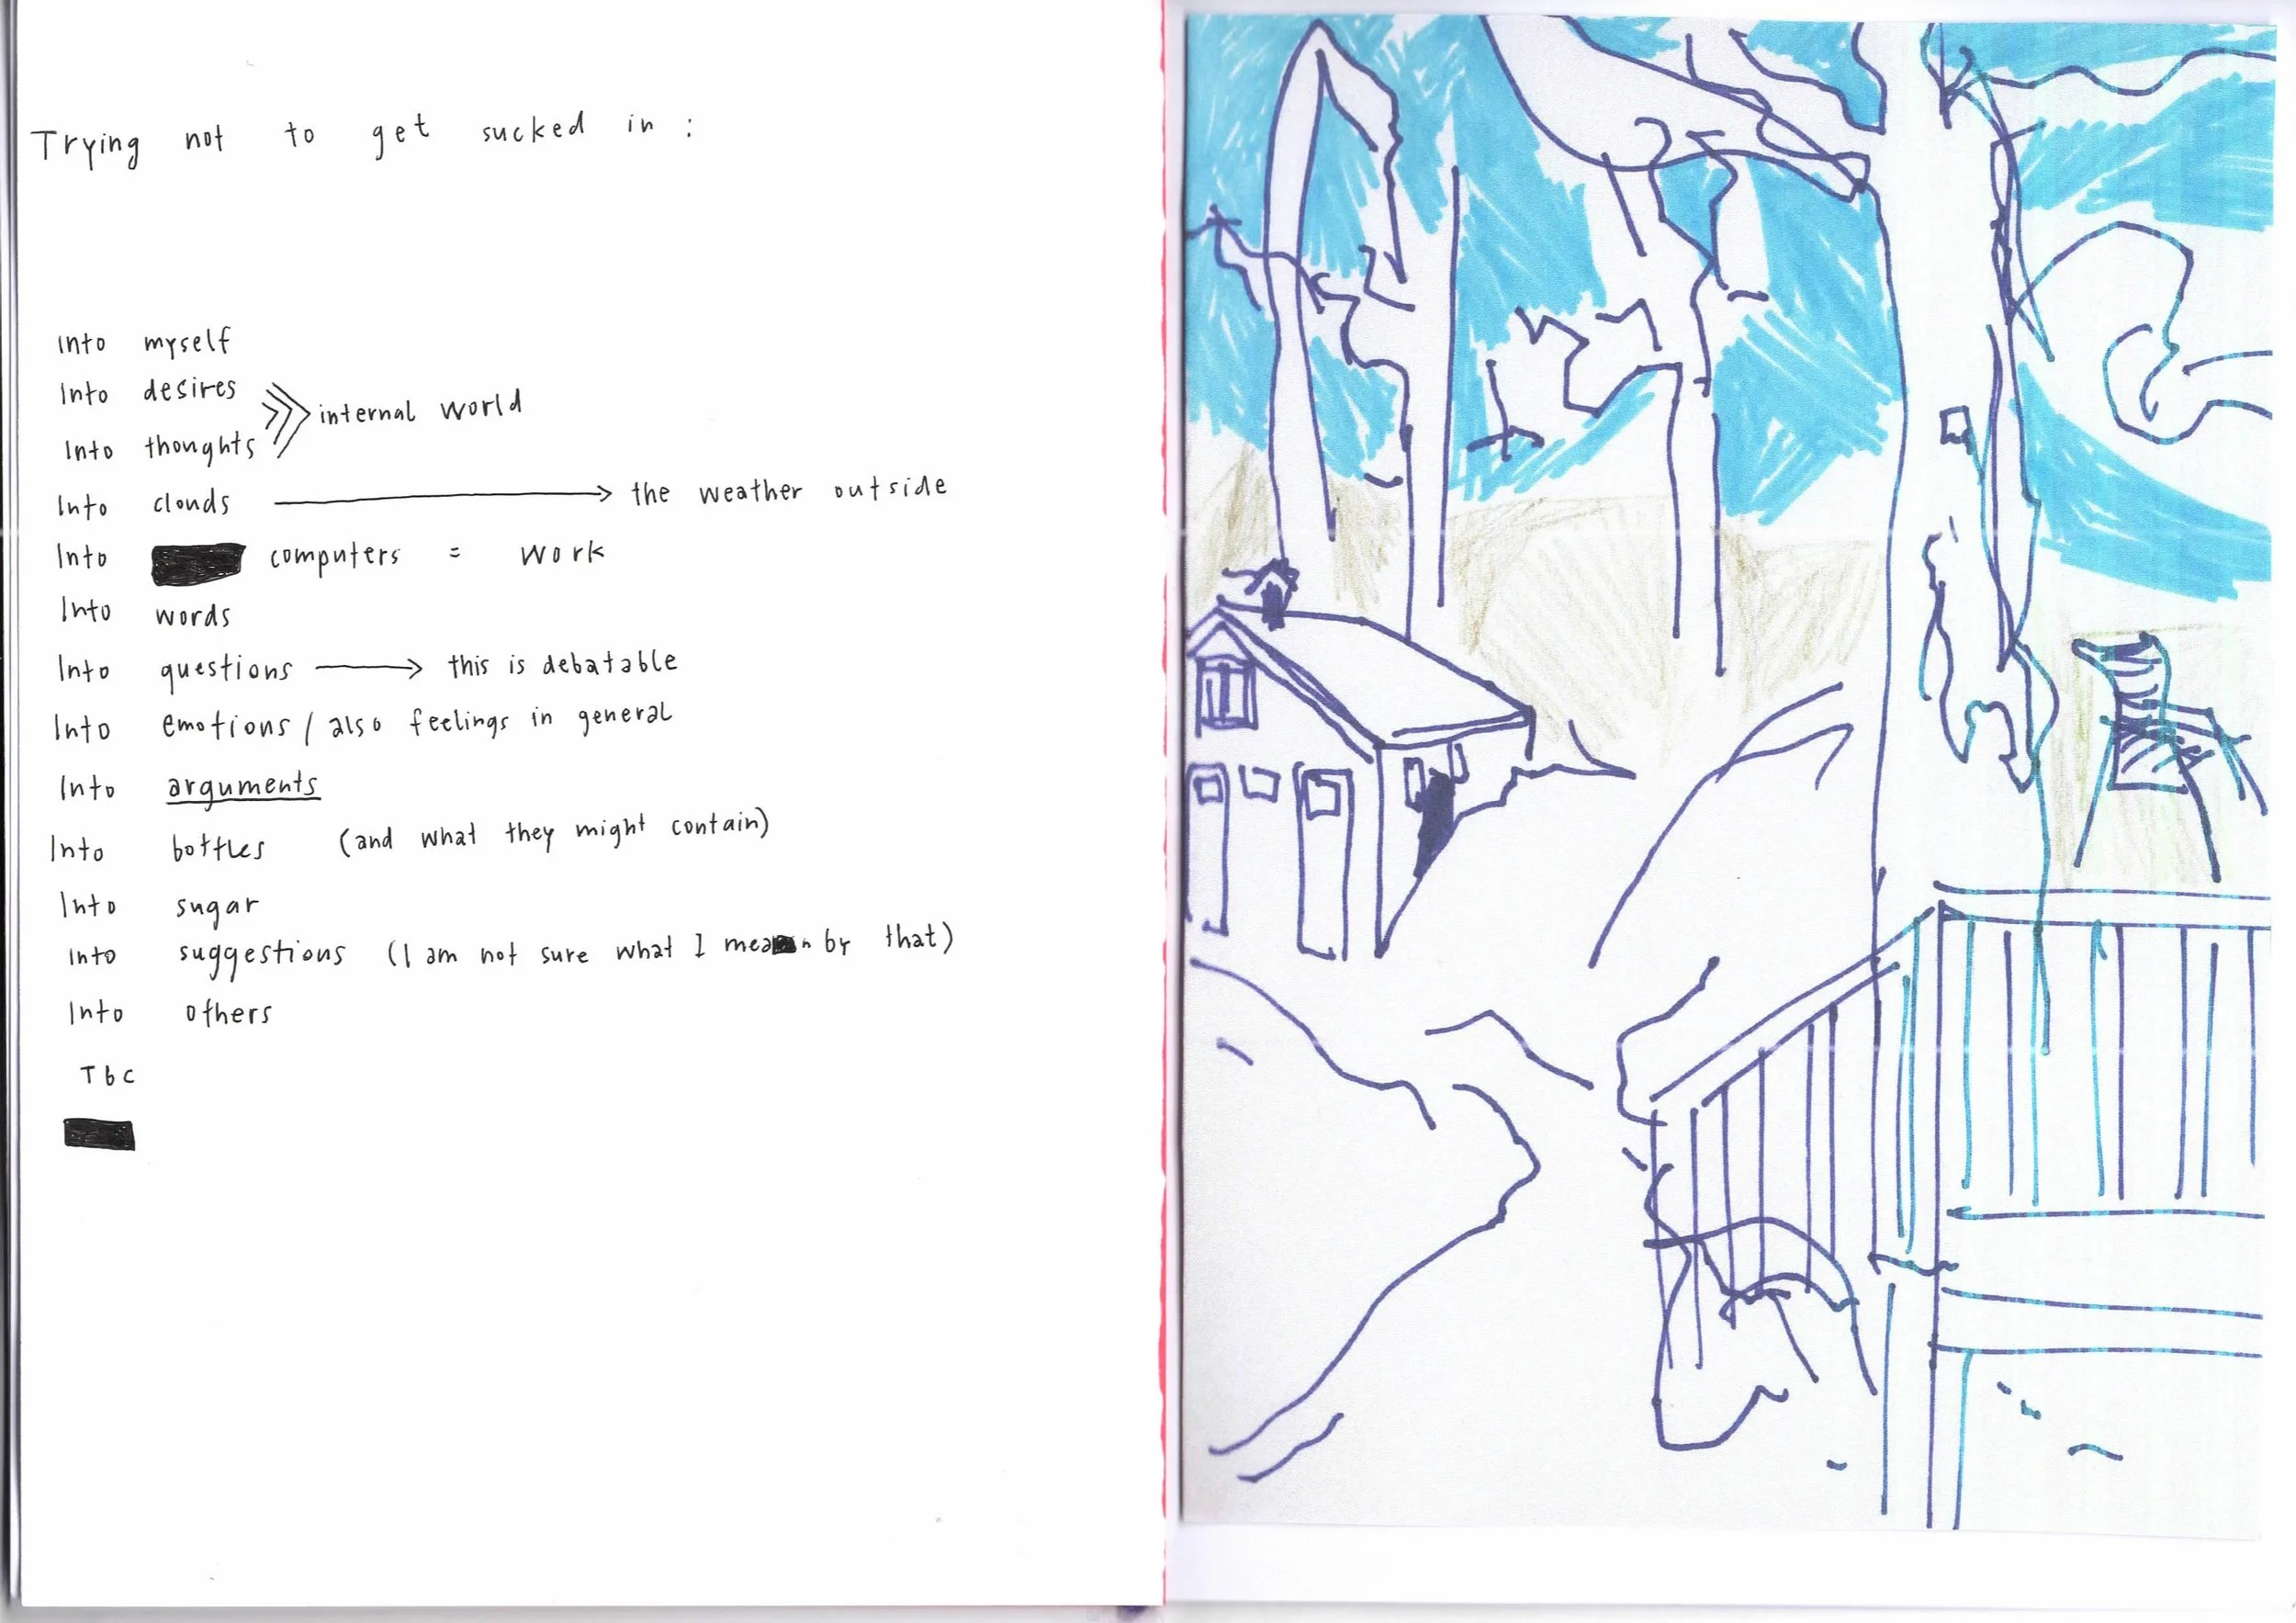 Trying not to get sucked in :
Into myself
Into desires
internal world
Into thoughts
Into clouds → the weather outside
Into computers = work
Into words
Into questions → this is debatable
Into emotions / also feelings in general
Into arguments
Into bottles (and what they might contain)
Into sugar
Into suggestions (I am not sure what I mean by that)
Into others
Tbc